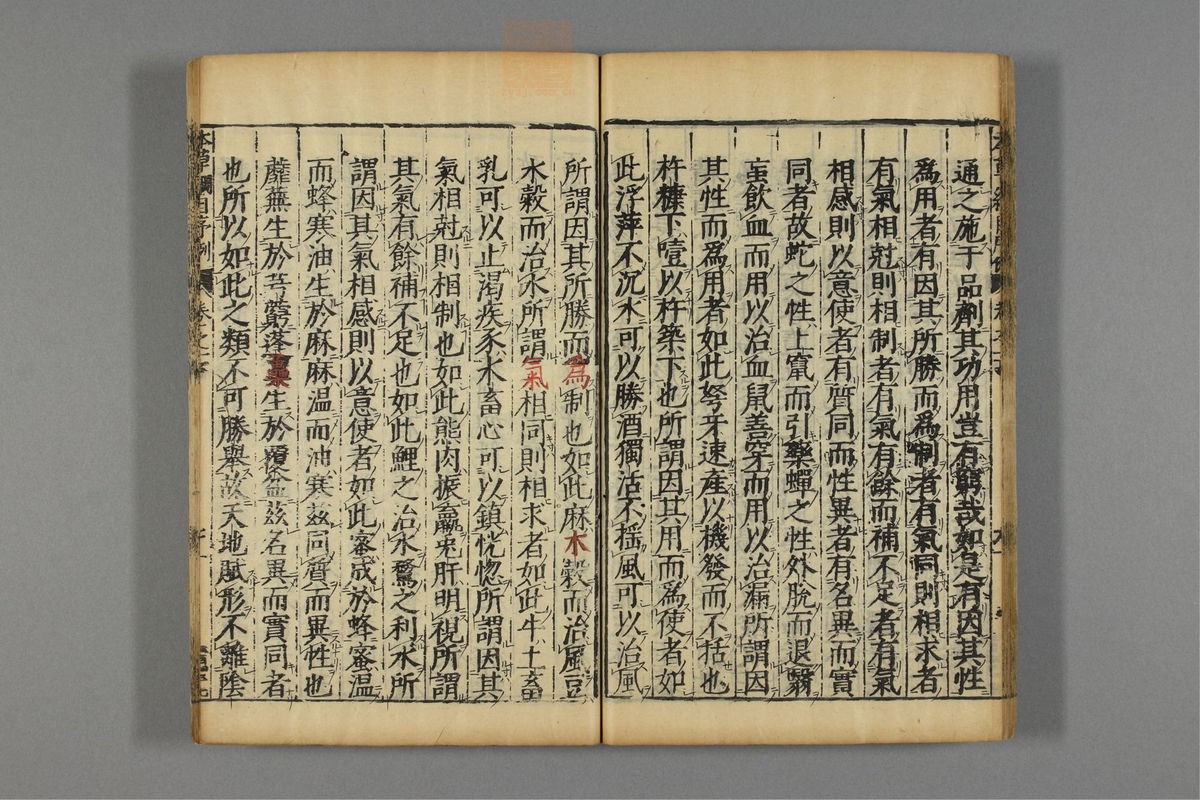 通之施于品劑其功用豈有窮哉如是有因其性
爲用者有因其所勝而爲制者有氣同則相求者
有氣相尅則相制者有氣有餘而補不足者有氣
相感則以意使者有質同而性異者有名異而實
同者故蛇之性上竄而引藥蟬之性外脫而退翳
虻飲血而用以治血鼠善穿而用以治漏所謂因
其性而爲用者如此弩牙速產以機發而不括也
杵糠下噎以杵築下也所謂因其用而爲使者如
此浮萍不沉水可以勝酒獨活不搖風可以治風
所謂因其所勝而爲制也如此麻木穀而治風豆
水穀而治水所謂氣相同則相求者如此牛土畜
乳可以止渴疾豕水畜心可以鎮恍惚所謂因其
氣相尅則相制也如此熊肉振羸兎肝明視所謂
其氣有餘補不足也如此鯉之治水鶩之利水所
謂因其氣相感則以意使者如此蜜成於蜂蜜温
而蜂寒油生於麻麻温而油寒茲同質而異性也
蘼蕪生於芎藭蓬蘽生於覆盆茲名異而實同者
也所以如此之類不可勝舉故天地賦形不離陰
本草綱目序例